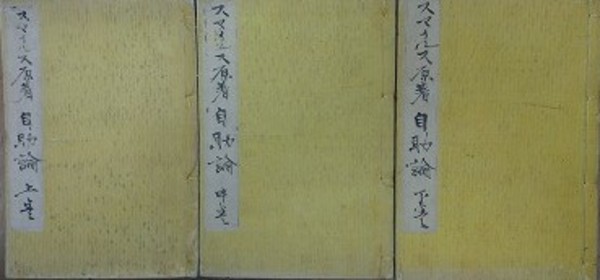 スマイルス原著 自助論 上巻
スマイルス原著 自助論 中巻
スマイルス原著 自助論 下巻